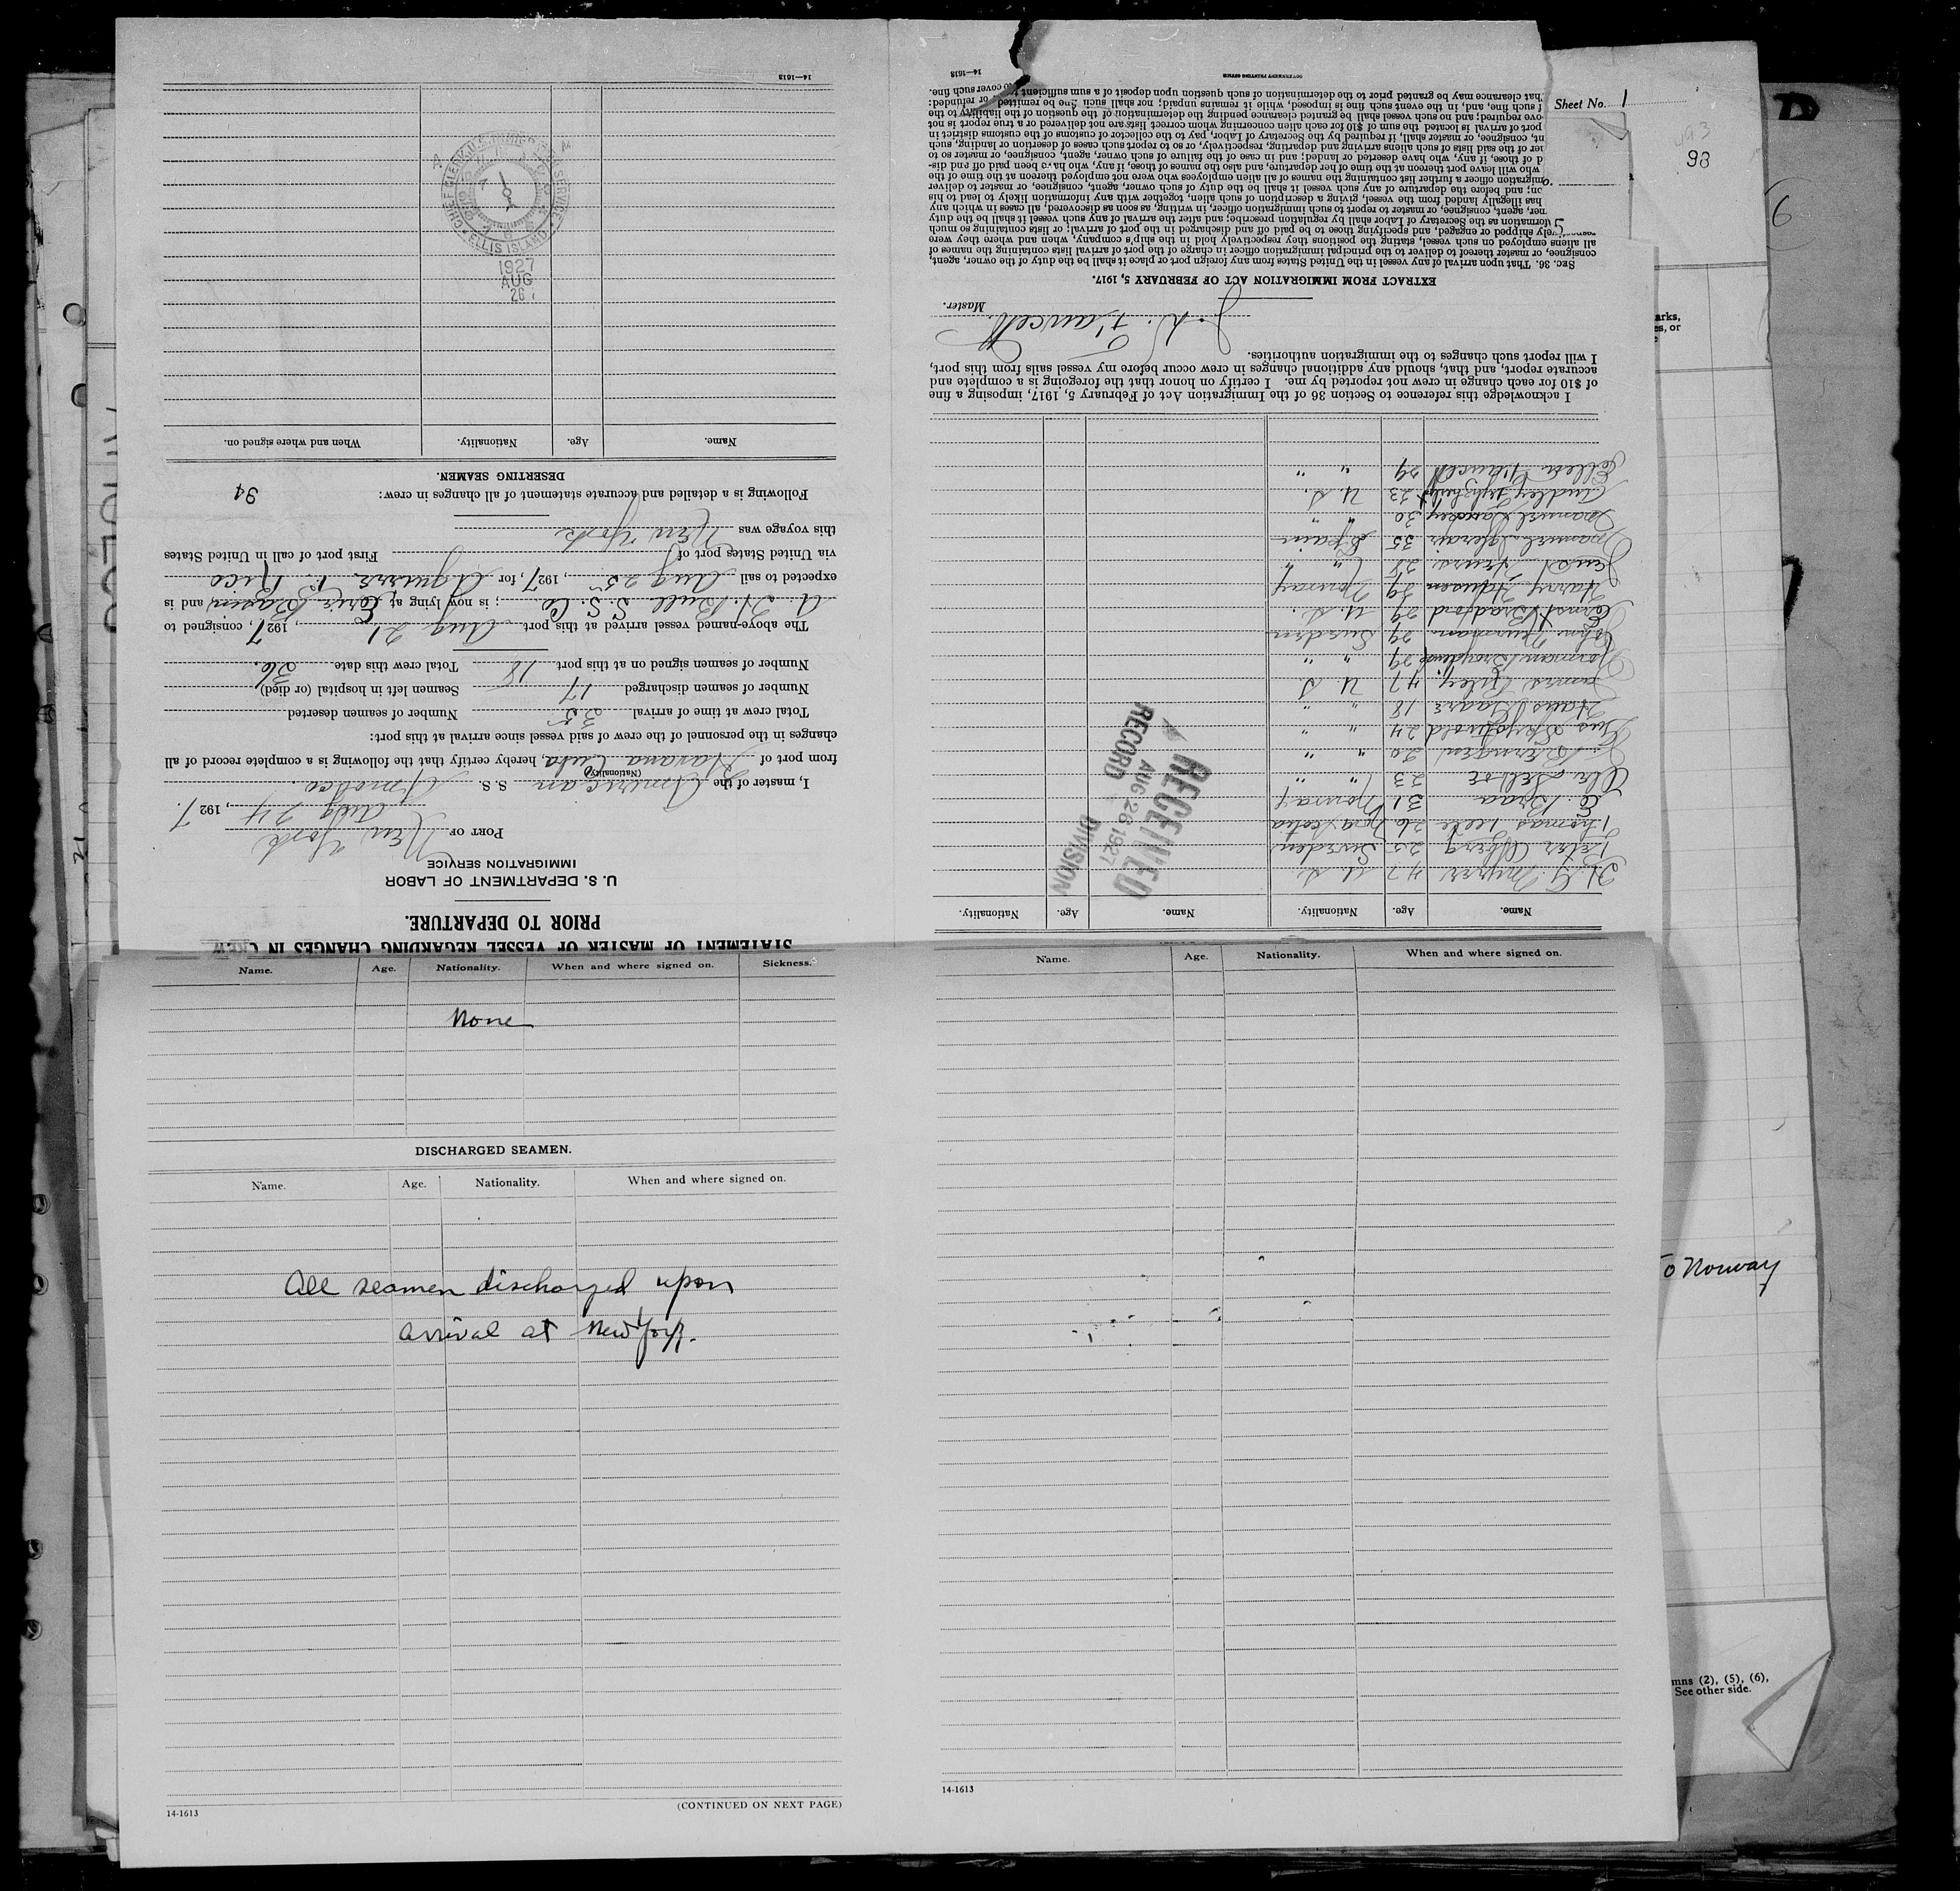 STATEMENT OF MASTER OF VESSEL REGARDING CHANGES IN CREW
PRIOR TO DEPARTURE.
U. S. DEPARTMENT OF LABOR
IMMIGRATION SERVICE
PORT OF New York
Aug 24, 1927.
I, master of the American S. S.
(Nationality)
from port of Havana Cuba, hereby certify that the following is a complete record of all
changes in the personnel of the crew of said vessel since arrival at this port:
Total crew at time of arrival 35 Number of seamen deserted
Number of seamen discharged 17 Seamen left in hospital (or died)
Number of seamen signed on at this port 18 Total crew this date 36.
The above-named vessel arrived at this port Aug 21, 1927, consigned to
A. H. Bull S. S. Co; is now lying at Erie Basin, and is
expected to sail Aug 25, 1927, for Aguirre P. Rico
via United States port of First port of call in United States
this voyage was New York
Following is a detailed and accurate statement of all changes in crew: 94
DESERTING SEAMEN.
Name. Age. Nationality. When and where signed on.
CHIEF CLERK, U.S. IMMIGRATION SERVICE
ELLIS ISLAND
1927
AUG
26
14—1613
Name. Age. Nationality. Name. Age. Nationality.
H. G. Myres 47 U. S
Peter Oberg 25 Sweden
Thomas 26 Nova Scotia
E. Braa 31 Norway
Ole Selboe 23 " "
Berntzen 20 " "
24 " "
Hans Haare 18 " "
James Riley 47 U. S
Norman 29 " "
John Neumann 29 Sweden
Ernst Bradford 29 U. S.
Harry Hansen 39 Norway
Jens 28 " "
Manuel 35 Spain
Manuel Sanchez 30 " "
Audley 23 U. S.
29 " "
RECEIVED
AUG 26 1927
RECORD DIVISION
I acknowledge this reference to Section 36 of the Immigration Act of February 5, 1917, imposing a fine
of $10 for each change in crew not reported by me. I certify on honor that the foregoing is a complete and
accurate report, and that, should any additional changes in crew occur before my vessel sails from this port,
I will report such changes to the immigration authorities.
Master.
EXTRACT FROM IMMIGRATION ACT OF FEBRUARY 5, 1917.
SEC. 36. That upon arrival of any vessel in the United States from any foreign port or place it shall be the duty of the owner, agent,
consignee, or master thereof to deliver to the principal immigration officer in charge of the port of arrival lists containing the names of
all aliens employed on such vessel, stating the positions they respectively hold in the ship's company, when and where they were
respectively shipped or engaged, and specifying those to be paid off and discharged in the port of arrival; or lists containing so much
formation as the Secretary of Labor shall by regulation prescribe; and after the arrival of any such vessel it shall be the duty
ner, agent, consignee, or master to report to such immigration officer, in writing, as soon as discovered, all cases in which any
has illegally landed from the vessel, giving a description of such alien, together with any information likely to lead to his
on; and before the departure of any such vessel it shall be the duty of such owner, agent, consignee, or master to deliver
migration officer a further list containing the names of all alien employees who were not employed thereon at the time of the
who will leave port thereon at the time of her departure, and also the names of those, if any, who have been paid off and dis-
d of those, if any, who have deserted or landed; and in case of the failure of such owner, agent, consignee, or master so to
er of the said lists of such aliens arriving and departing, respectively, or so to report such cases of desertion or landing, such
nt, consignee, or master shall, if required by the Secretary of Labor, pay to the collector of customs of the customs district in
port of arrival is located the sum of $10 for each alien concerning whom correct lists are not delivered or a true report is not
ove required; and no such vessel shall be granted clearance pending the determination of the question of the liability to the
f such fine, and, in the event such fine is imposed, while it remains unpaid; nor shall such fine be remitted or refunded:
hat clearance may be granted prior to the determination of such question upon deposit of a sum sufficient to cover such fine.
14—1613 GOVERNMENT PRINTING OFFICE
Sheet No. 1
98
arks,
es, or
e
Name. Age. Nationality. When and where signed on. Sickness.
None
DISCHARGED SEAMEN.
Name. Age. Nationality. When and where signed on.
All seamen discharged upon
arrival at New York.
14-1613
(CONTINUED ON NEXT PAGE)
Name. Age. Nationality. When and where signed on.
14-1613
To Norway
mns (2), (5), (6),
See other side.